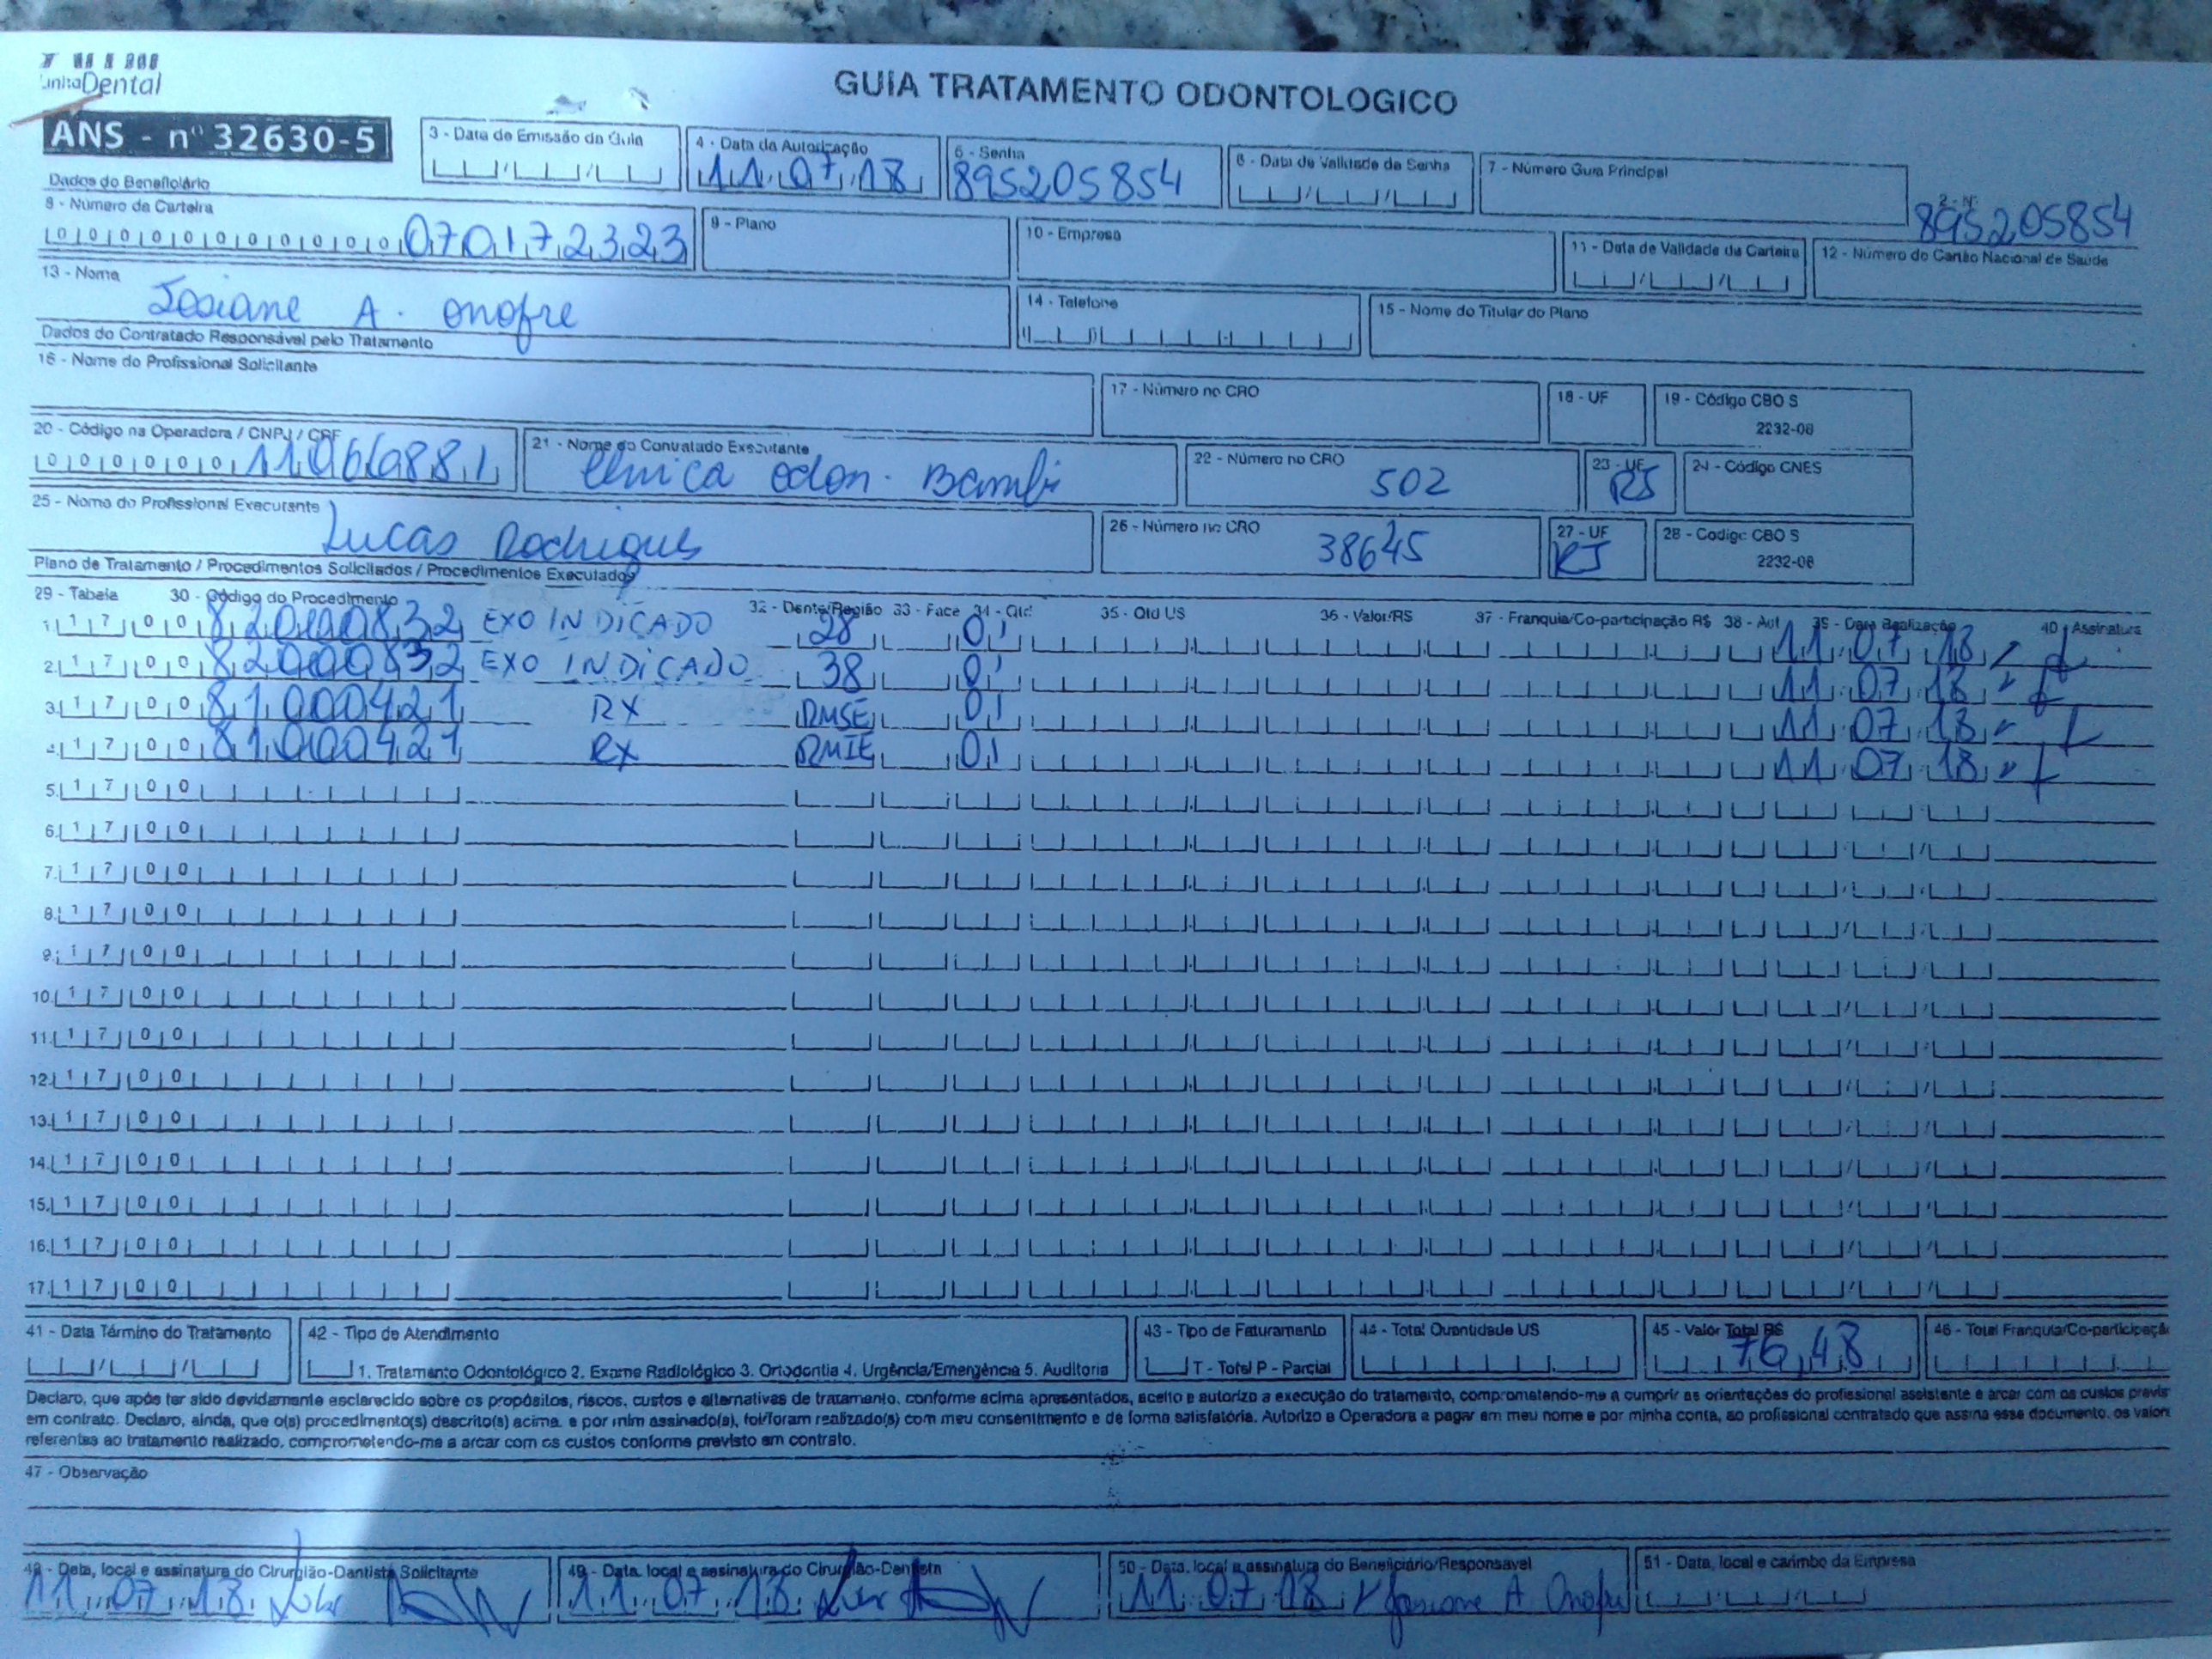 LinhaDental
GUIA TRATAMENTO ODONTOLOGICO
ANS - nº 32630-5
3 - Data de Emissão da Guia
4 - Data da Autorização
11 07 18
5 - Senha
895205854
6 - Data de Validade da Senha
7 - Número Guia Principal
2 - Nº
895205854
Dados do Beneficiário
8 - Número da Carteira
0 0 0 0 0 0 0 0 0 0 0 0 070172323
9 - Plano
10 - Empresa
11 - Data de Validade da Carteira
12 - Número do Cartão Nacional de Saúde
13 - Nome
Josiane A. Onofre
14 - Telefone
15 - Nome do Titular do Plano
Dados do Contratado Responsável pelo Tratamento
16 - Nome do Profissional Solicitante
17 - Número no CRO
18 - UF
19 - Código CBO S
2232-08
20 - Código na Operadora / CNPJ / CPF
21 - Nome do Contratado Executante
Clinica Odon. Bambi
22 - Número no CRO
502
23 - UF
RJ
24 - Código CNES
25 - Nome do Profissional Executante
Lucas Rodrigues
26 - Número no CRO
38645
27 - UF
RJ
28 - Codigo CBO S
2232-08
Plano de Tratamento / Procedimentos Solicitados / Procedimentos Executados
29 - Tabela 30 - Código do Procedimento 32 - Dente/Região 33 - Face 34 - Qtd 35 - Qtd US 36 - Valor/R$ 37 - Franquia/Co-participação R$ 38 - Aut 39 - Data Realização 40 - Assinatura
1. 1 7 0 0 82000832 EXO INDICADO 28 01 11 07 18
2. 1 7 0 0 82000832 EXO INDICADO 38 01 11 07 18
3. 1 7 0 0 81000421 RX RMSE 01 11 07 18
4. 1 7 0 0 81000421 RX RMIE 01 11 07 18
5. 1 7 0 0
6. 1 7 0 0
7. 1 7 0 0
8. 1 7 0 0
9. 1 7 0 0
10. 1 7 0 0
11. 1 7 0 0
12. 1 7 0 0
13. 1 7 0 0
14. 1 7 0 0
15. 1 7 0 0
16. 1 7 0 0
17. 1 7 0 0
41 - Data Término do Tratamento
42 - Tipo de Atendimento
1. Tratamento Odontológico 2. Exame Radiológico 3. Ortodontia 4. Urgência/Emergência 5. Auditoria
43 - Tipo de Faturamento
T - Total P - Parcial
44 - Total Quantidade US
45 - Valor Total R$
76,48
46 - Total Franquia/Co-participaçã
Declaro, que após ter sido devidamente esclarecido sobre os propósitos, riscos, custos e alternativas de tratamento, conforme acima apresentados, aceito e autorizo a execução do tratamento, comprometendo-me a cumprir as orientações do profissional assistente e arcar com os custos previs
em contrato. Declaro, ainda, que o(s) procedimento(s) descrito(s) acima, e por mim assinado(s), foi/foram realizado(s) com meu consentimento e de forma satisfatória. Autorizo a Operadora a pagar em meu nome e por minha conta, ao profissional contratado que assina esse documento, os valore
referentes ao tratamento realizado, comprometendo-me a arcar com os custos conforme previsto em contrato.
47 - Observação
48 - Data, local e assinatura do Cirurgião-Dentista Solicitante
11 07 18
49 - Data, local e assinatura do Cirurgião-Dentista
11 07 18
50 - Data, local e assinatura do Beneficiário/Responsável
11 07 18 Josiane A. Onofre
51 - Data, local e carimbo da Empresa